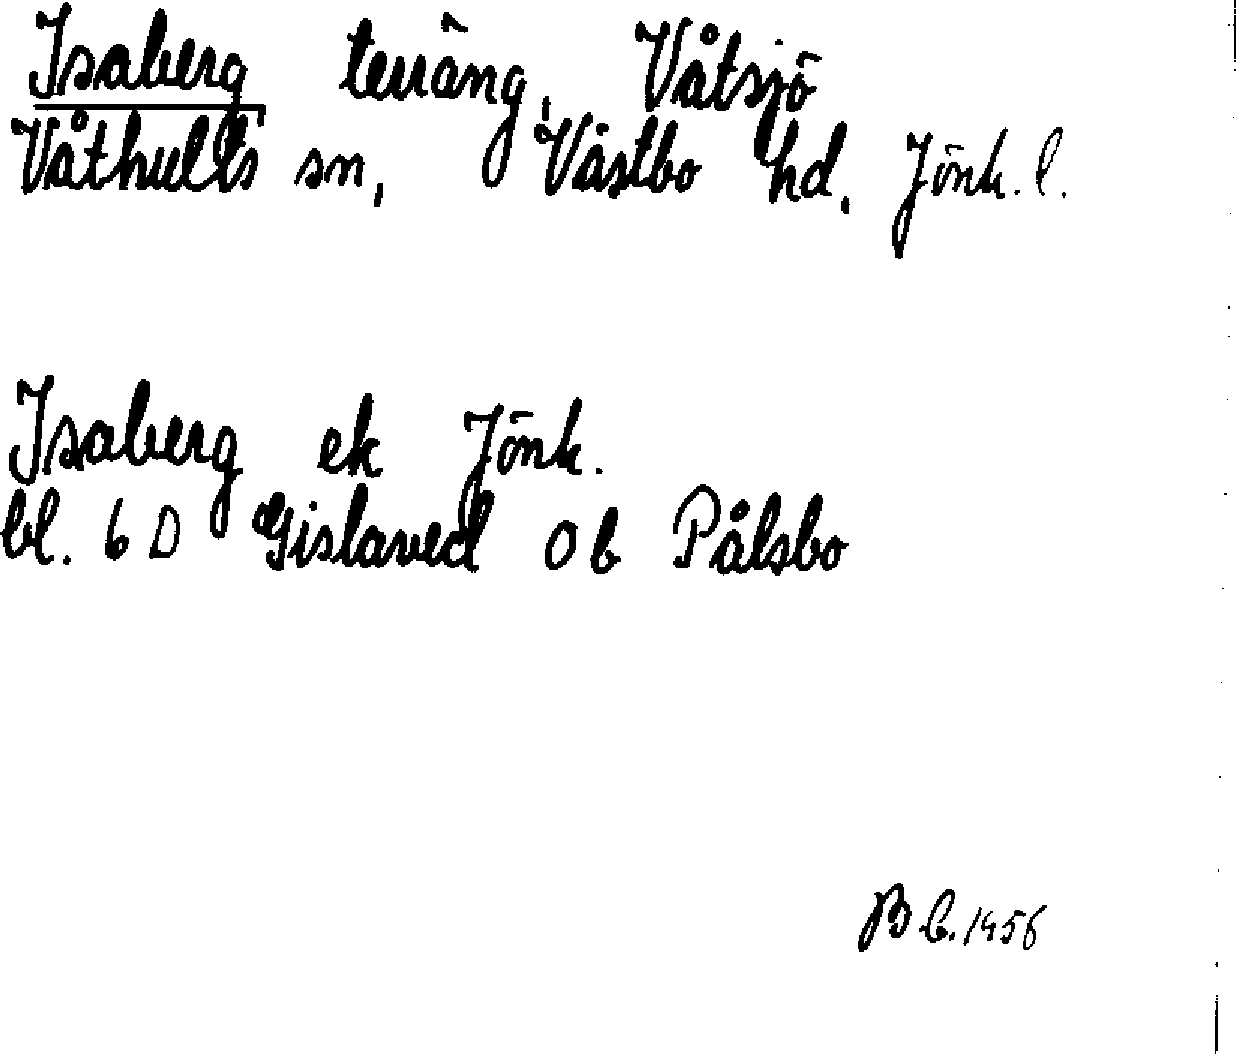 Isaberg terräng, Våtsjö
Våthults sn, Västbo hd. Jönk. l.
Isaberg ek Jönk.
bl. 6 D Gislaved 0 b Pålsbo
B L. 1956